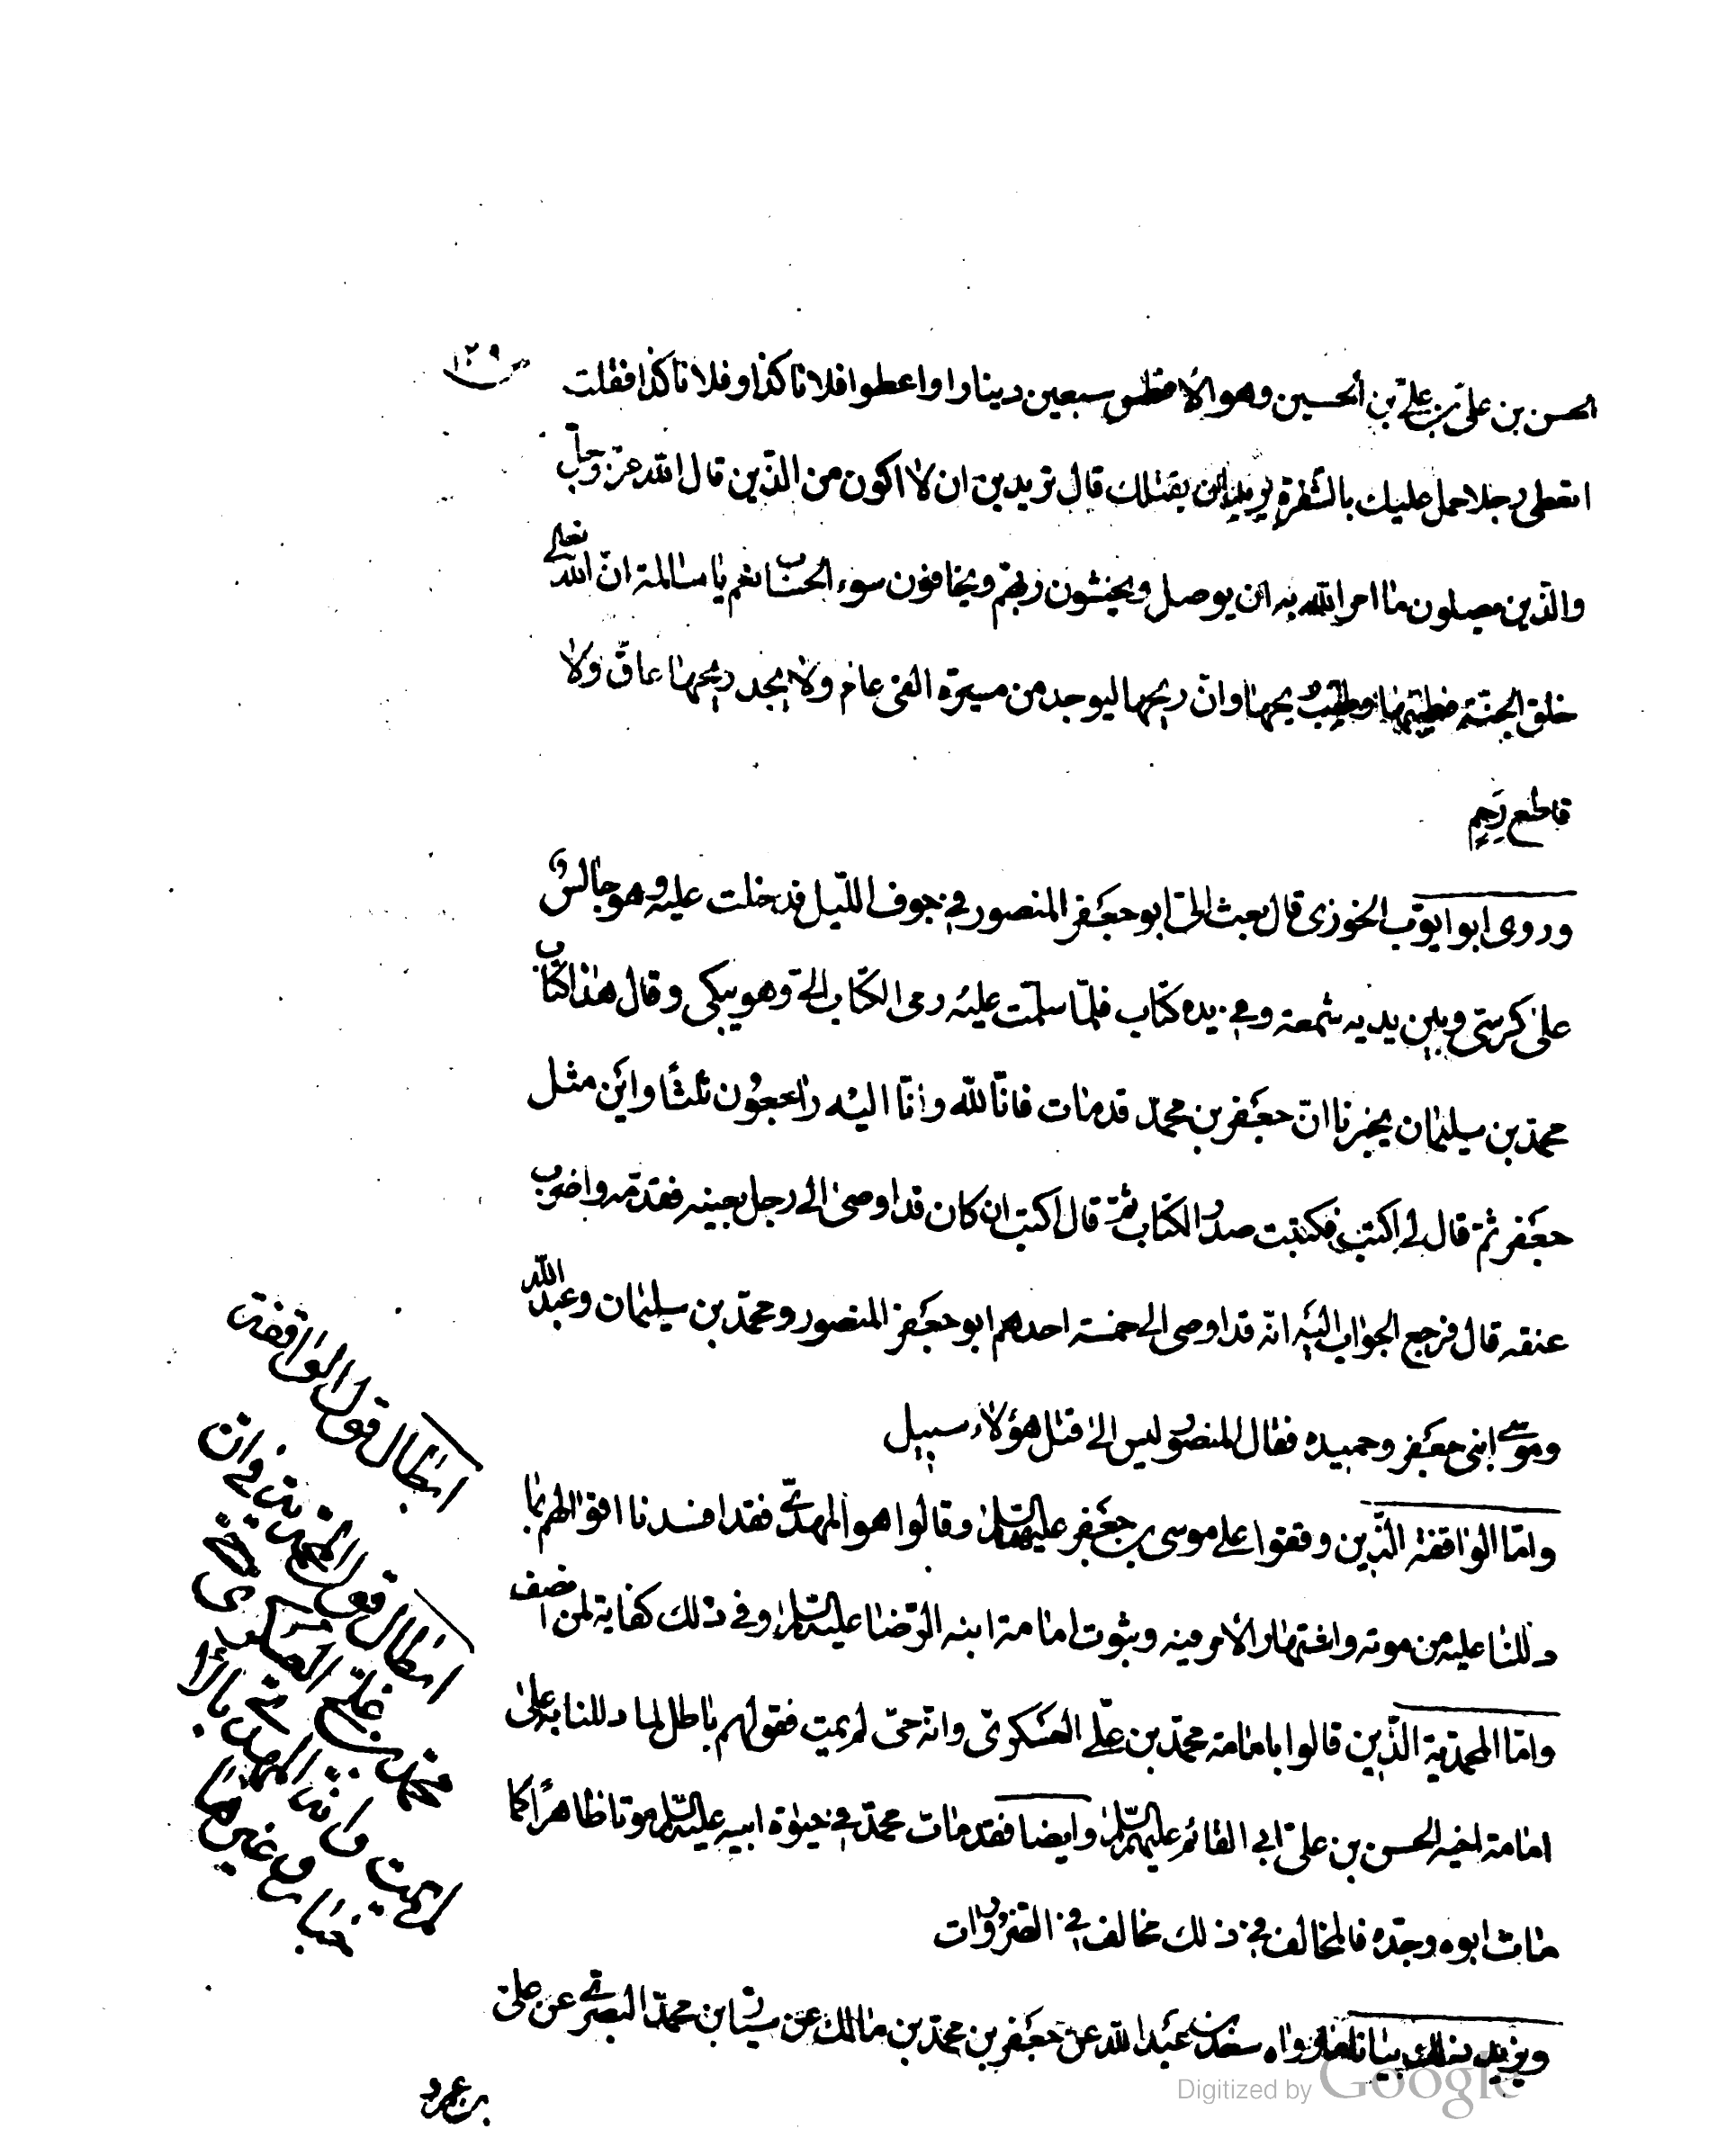 ص ١٢٩
الحسن بن علىّ بن علىّ بن الحسين وهو الافطس سبعين دينارا واعطوا فلانا كذا وفلانا كذا فقلت
اتعطى رجلا حمل عليك بالشفرة يريد ان يقتلك قال تريدين ان لا اكون من الذين قال الله عزّ وجلّ
والذين يصلون ما امر الله به ان يوصل ويخشون ربهم ويخافون سوء الحساب نعم يا سالمة انّ الله تعالى
خلق الجنّة فطيّبها وطيّب ريحها وانّ ريحها ليوجد من مسيرة الفى عام ولا يجد ريحها عاقّ ولا
قاطع رَحِمٍ
وروى ابو ايوّب الخوزى قال بعث الىّ ابو جعفر المنصور في جوف الليل فدخلت عليه وهو جالسٌ
على كرسىّ وبين يديه شمعة وفي يده كتاب فلمّا سلّمت عليه رمى الكتاب الىّ وهو يبكى وقال هذا كتاب
محمّد بن سليمان يخبرنا انّ جعفر بن محمّد قد مات فانّا لله وانّا اليه راجعون ثلثًا واين مثل
جعفر ثمّ قال لى اكتب فكتبت صدر الكتاب ثمّ قال اكتب ان كان قد اوصى الى رجل بعينه فقدّمه واضرب
عنقه قال فرجع الجواب اليه انّه قد اوصى الى خمسة احدهم ابو جعفر المنصور ومحمّد بن سليمان وعبد الله
وموسى ابنى جعفر وحميده فقال المنصور ليس الى قتل هؤلاء سبيل
وامّا الواقفة الّذين وقفوا على موسى بن جعفر عليهما السلام وقالوا هو المهدىّ فقد افسدنا اقوالهم بما
دللنا عليه من موته واشتهار الأمر فيه وبثوت امامة ابنه الرّضا عليه السلام وفي ذلك كفاية لمن انصف
وامّا المحمّدية الّذين قالوا بامامة محمّد بن علىّ العسكرىّ وانّه حىّ لم يمت فقولهم باطل لما دللنا به على
امامة اخيه الحسن بن علىّ ابى القائم عليهم السلام وايضا فقد مات محمّد في حيوة ابيه عليه السلام موتا ظاهرًا كما
مات ابوه وجدّه فالمخالف في ذلك مخالف في الضرورات
ويزيد ذلك بيانا ما رواه سعد بن عبد الله عن جعفر بن محمّد بن مالك عن سيّار بن محمّد البصرى عن علىّ
بن عمرو
ابطال قول الواقفة
ابطال قول المحمدية في ان
محمد بن على العسكرى حىّ
لم يمت وانه المهدى بالأ
خبار وغيرها